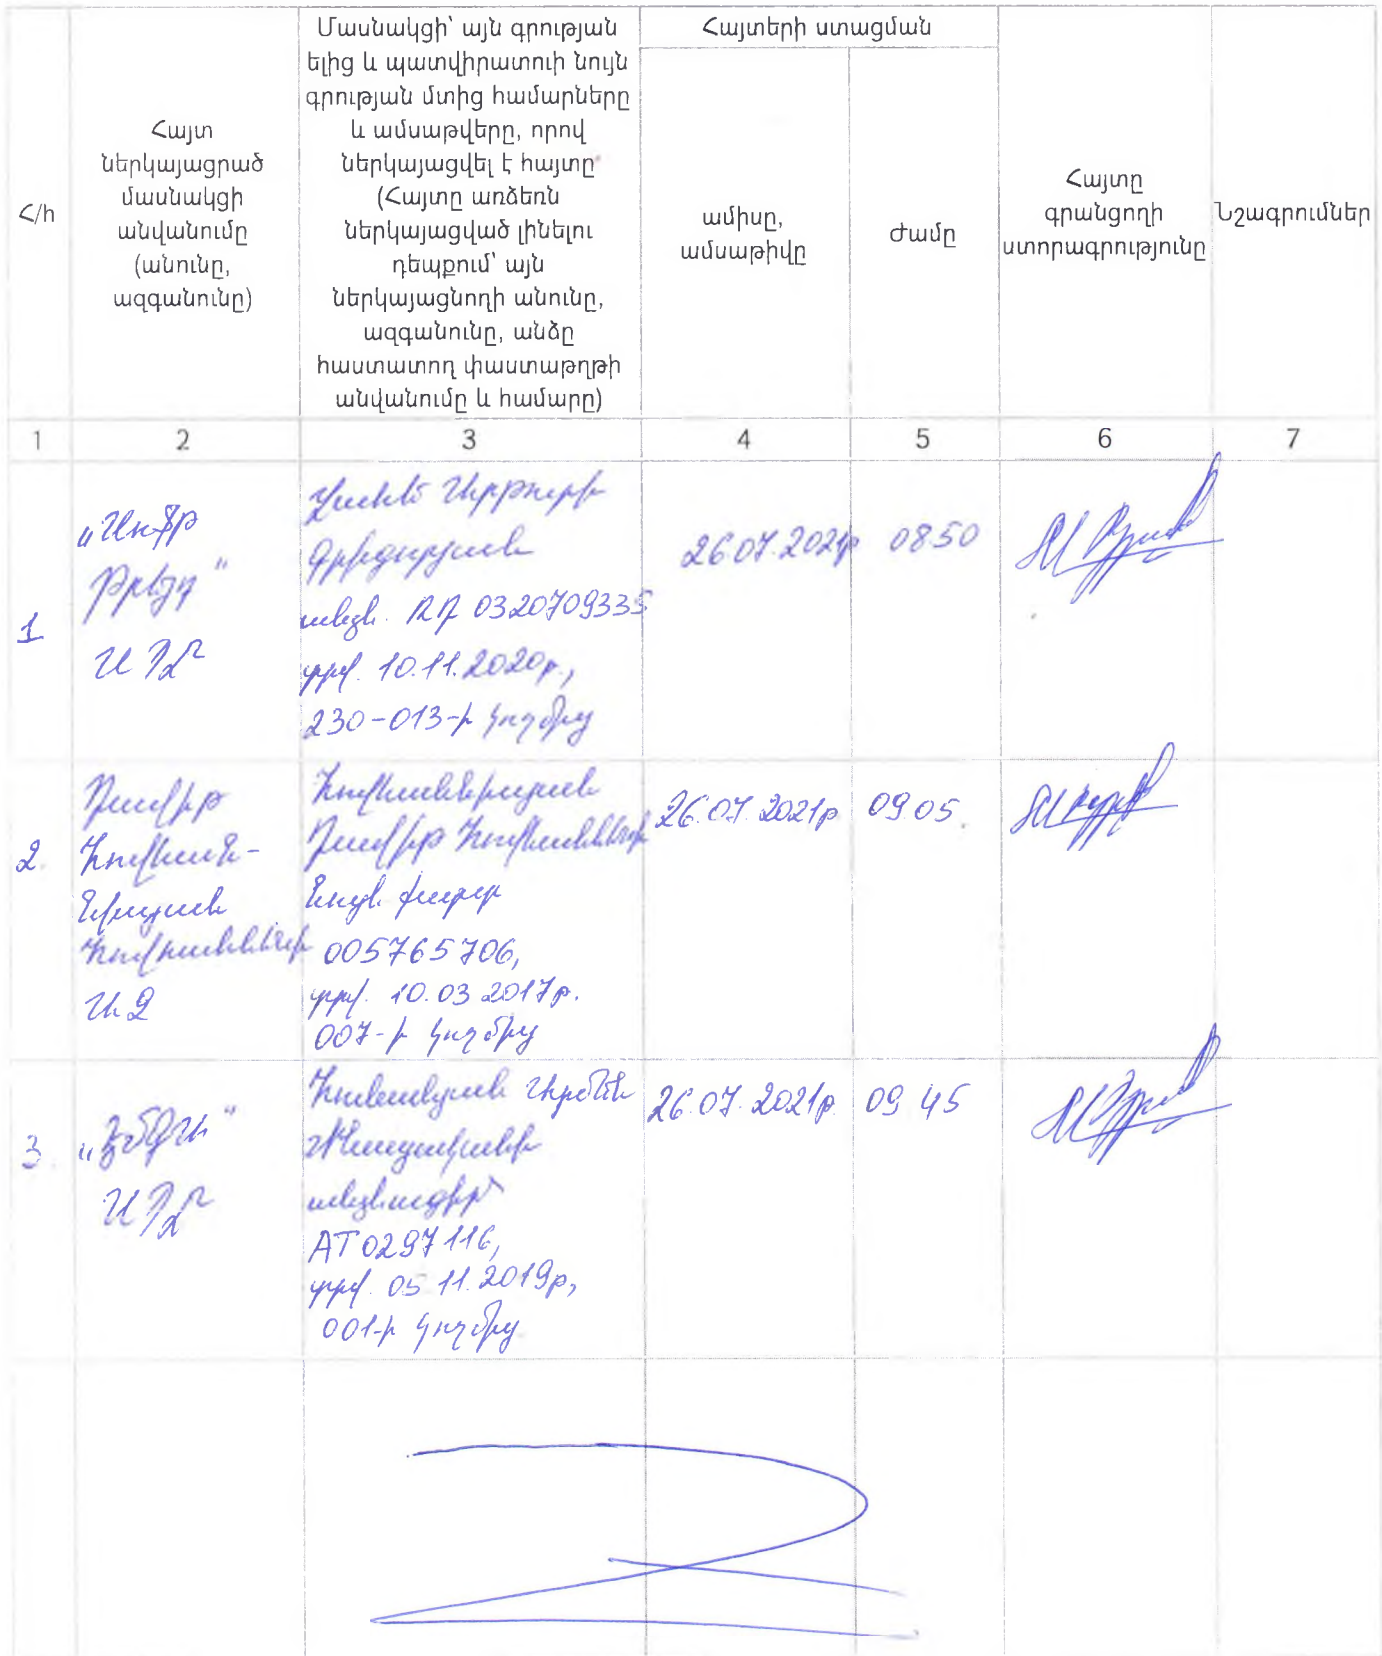 Հ/հ
Հայտ
ներկայացրած
մասնակցի
անվանումը
(անունը,
ազգանունը)
Մասնակցի՝ այն գրության
ելից և պատվիրատուի նույն
գրության մտից համարները
և ամսաթվերը, որով
ներկայացվել է հայտը
(Հայտը առձեռն
ներկայացված լինելու
դեպքում՝ այն
ներկայացնողի անունը,
ազգանունը, անձը
հաստատող փաստաթղթի
անվանումը և համարը)
Հայտերի ստացման
ամիսը,
ամսաթիվը
ժամը
Հայտը
գրանցողի
ստորագրությունը
Նշագրումներ
1 2 3 4 5 6 7
1
Թրեյդ"
ՍՊԸ
Արթուրի
Գրիգորյան
անձն. 0320709335
տրվ. 10.11.2020թ.,
230-013-ի կողմից
26.07.2021թ 08 50
2.
Դավիթ
Հովհան-
նիսյան
Հովհաննեսի
ԱՁ
Հովհաննիսյան
Դավիթ Հովհաննեսի
նույն. քարտ
005765706,
տրվ. 10.03 2017թ.
007-ի կողմից
26.07. 2021թ 09 05.
3.
ՍՊԸ
Արմեն
անձնագիր
AT0297116,
տրվ. 05 11.2019թ,
001-ի կողմից
26.07.2021թ. 09 45